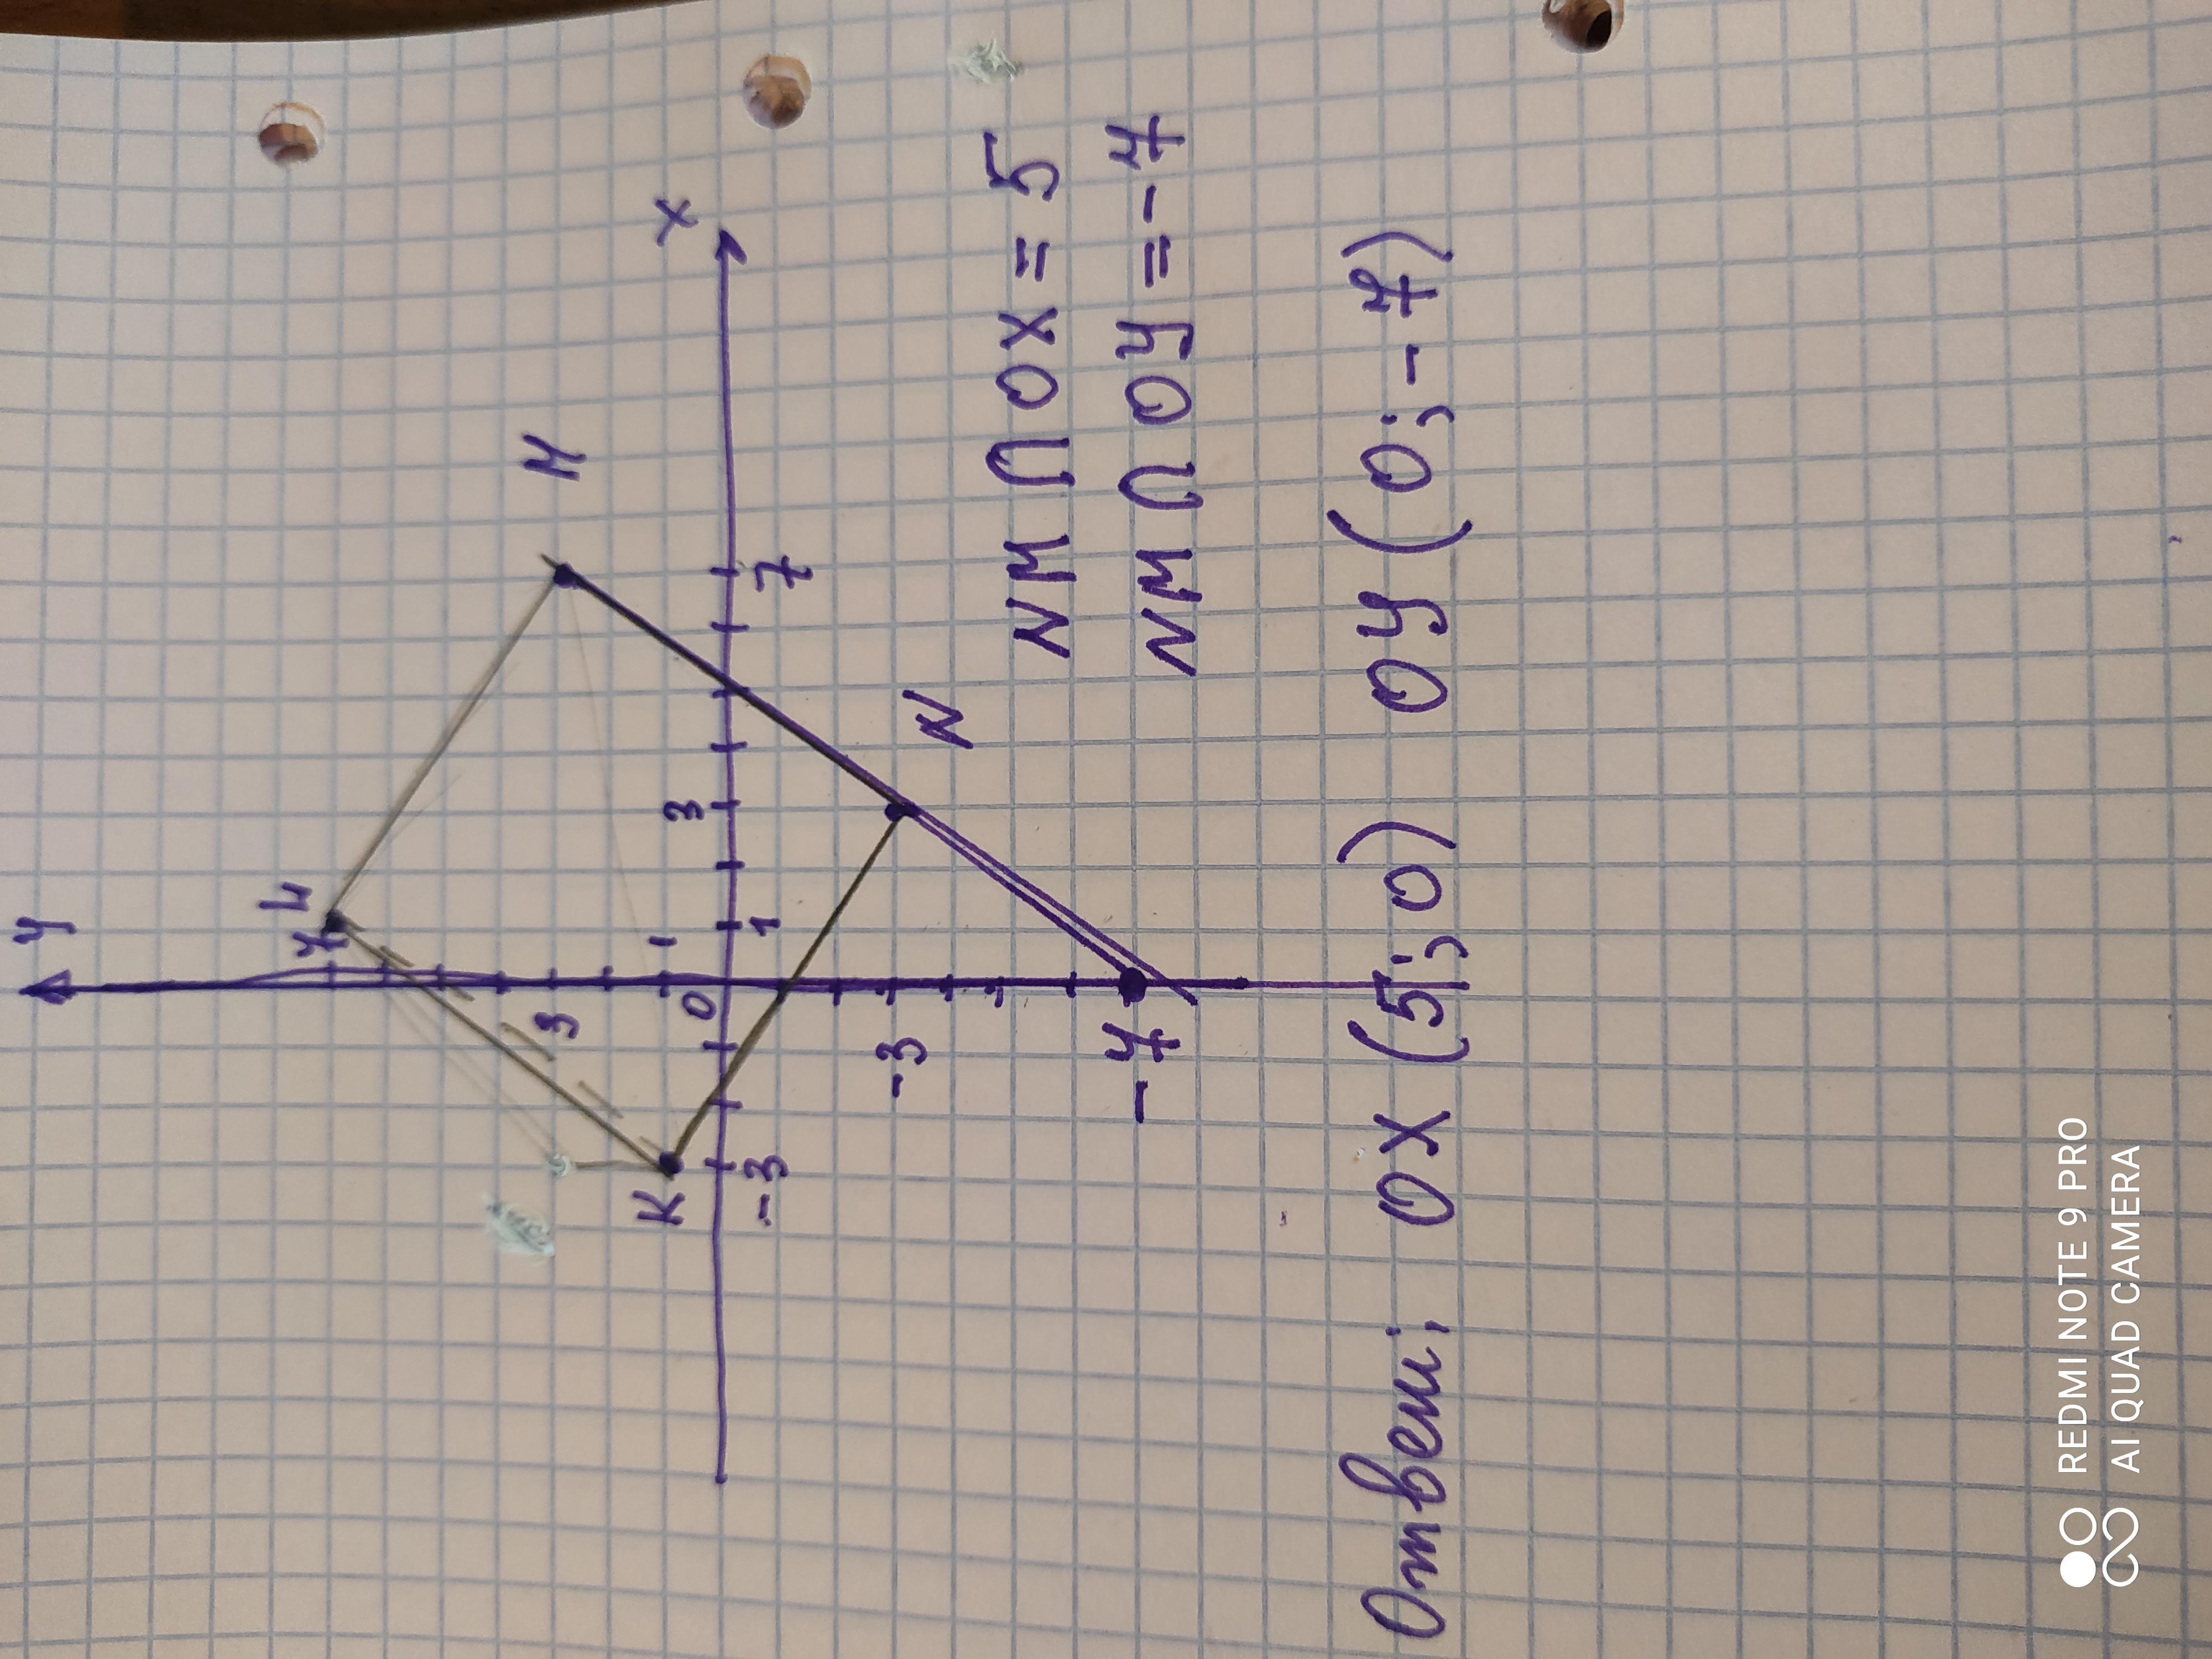 У
L
7
M
3
1
X
K
-3
0
1
3
7
-3
N
-7
NM ∩ OX = 5
NM ∩ OY = -7
Ответ: OX (5; 0) OY (0; -7)
REDMI NOTE 9 PRO
AI QUAD CAMERA